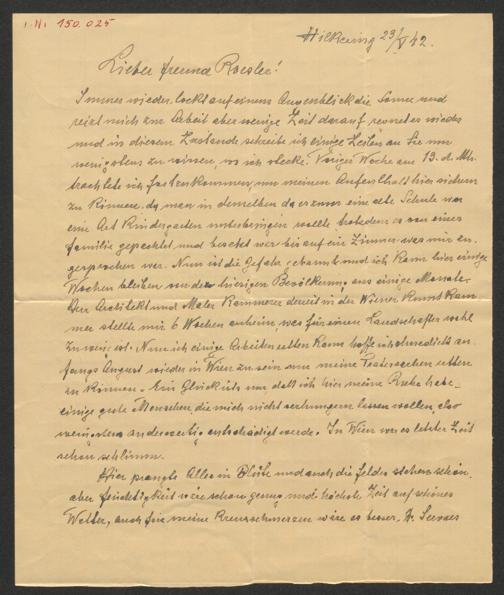 I.N. 150.025
Hilkering 23/V 42.
Lieber freund Roessler!
Immer wieder lockt auf einen Augenblick die Sonne und
reizt mich zur Arbeit aber wenige Zeit darauf regnet es wieder
und in diesem Zustande schreibe ich einige Zeilen an Sie um
wenigstens zu wissen, wo ich stecke. Vorige Woche am 13. d. Mts.
trachtete ich fortzukommen, um meinen Aufenthalt hier sichern
zu können, da man in demselben da er zuvor eine alte Schule war
eine Art Kindergarten unterbringen wollte trotzdem es von einer
familie gepachtet und besetzt war bis auf ein Zimmer was mir zu
gesprochen war. Nun ist die Gefahr gebannt und ich kann hier einige
Wochen bleiben von der hiesigen Bevölkerung aus einige Monate.
Der Architekt und Maler Kammerer derzeit in der Wiener Kunstkam
mer stellte mir 6 Wochen anheim, was für einen Landschafter wohl
zu wenig ist. Nun ich einige Arbeiten kann hoffe ich
fangs August wieder in Wien zu sein um meine
zu können. Ein Glück ist nur, daß ich hier meine Ruhe habe
einige gute Menschen, die mich nicht verhungern lassen wollen, also
wenigstens anderseitig entschädigt werde. In Wien war es letzter Zeit
schon schlimm.
Hier prangt Alles in Blüte und auch die felder stehen schön,
aber feuchtigkeit wäre schon genug und höchste Zeit auf schönes
Wetter, auch für meine Kreuzschmerzen wäre es besser.